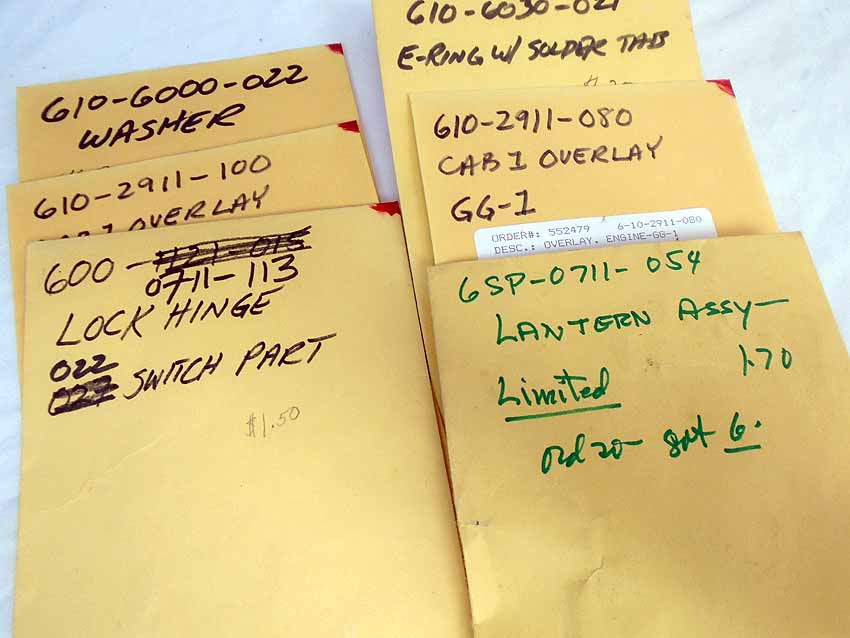 610-6000-022
WASHER
610-2911-100
CAB 1 OVERLAY
600-
0711-113
LOCK HINGE
022
SWITCH PART
$1.50
610-6030-021
E-RING W/ SOLDER TAB
610-2911-080
CAB 1 OVERLAY
GG-1
ORDER#: 552479 6-10-2911-080
DESC.: OVERLAY. ENGINE-GG-1
6SP-0711-054
LANTERN ASSY-
1.70
Limited
Ord 20- got 6.